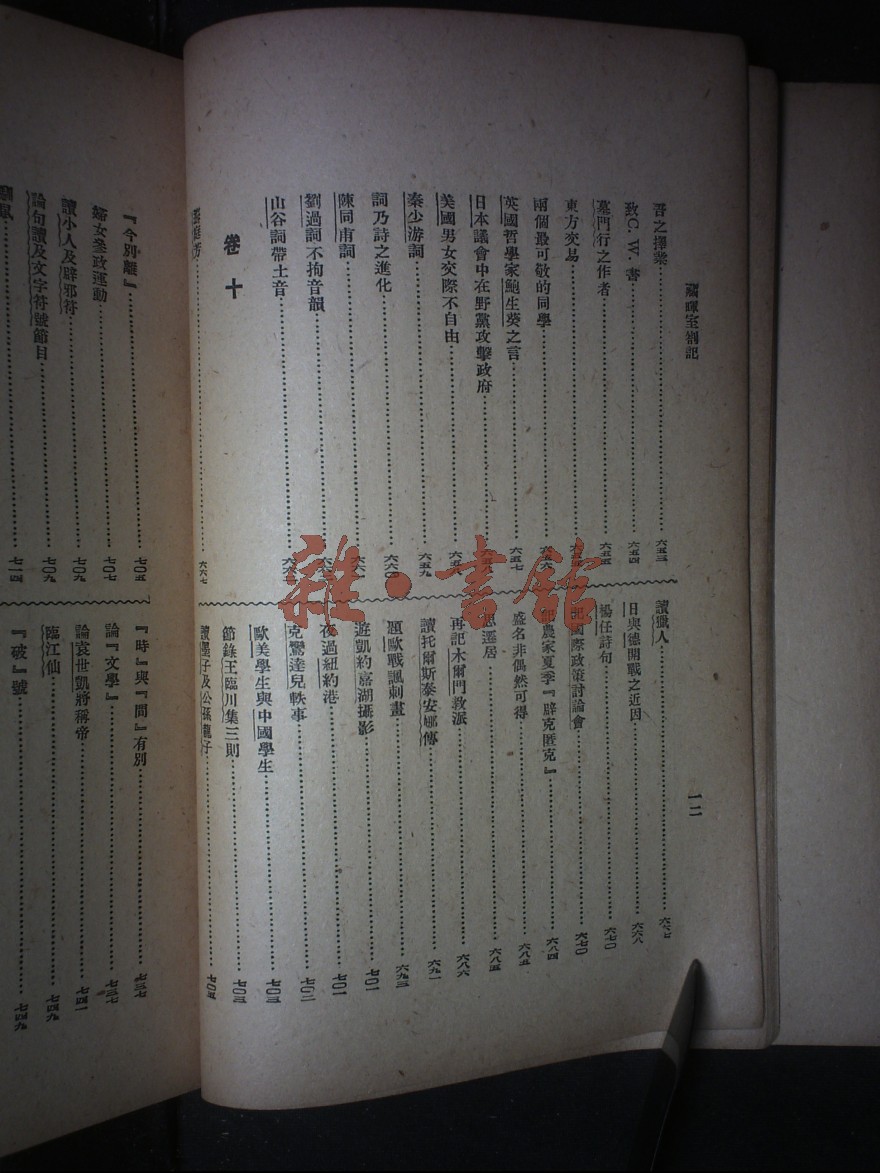 藏暉室劄記
一二
吾之擇業⋯⋯六五三
致C.W.書⋯⋯六五四
墓門行之作者⋯⋯六五五
東方交易⋯⋯
兩個最可敬的同學⋯⋯六五六
英國哲學家鮑生葵之言⋯⋯六五七
日本議會中在野黨攻擊政府⋯⋯六五八
美國男女交際不自由⋯⋯六五八
秦少游詞⋯⋯六五九
詞乃詩之進化⋯⋯六六〇
陳同甫詞⋯⋯六六
劉過詞不拘音韻⋯⋯六六
山谷詞帶土音⋯⋯六六
卷十
⋯⋯六六七
讀獵人⋯⋯六六七
日與德開戰之近因⋯⋯六六八
楊任詩句⋯⋯六七〇
記國際政策討論會⋯⋯六七〇
記農家夏季『辟克匿克』⋯⋯六八四
盛名非偶然可得⋯⋯六八五
思遷居⋯⋯六八五
再記木爾門教派⋯⋯六八六
讀托爾斯泰安娜傳⋯⋯六九一
題歐戰諷刺畫⋯⋯六九三
遊凱約嘉湖攝影⋯⋯七〇一
夜過紐約港⋯⋯七〇一
克鸞達兒軼事⋯⋯七〇二
歐美學生與中國學生⋯⋯七〇三
節錄王臨川集三則⋯⋯七〇三
讀墨子及公孫龍子⋯⋯七〇五
『今別離』⋯⋯七〇五
婦女參政運動⋯⋯七〇七
讀小人及辟邪符⋯⋯七〇九
論句讀及文字符號節目⋯⋯七〇九
⋯⋯七一四
『時』與『間』有別⋯⋯七三七
論『文學』⋯⋯七三七
論袁世凱將稱帝⋯⋯七四一
臨江仙⋯⋯七四九
『破』號⋯⋯七四九
雜·書館